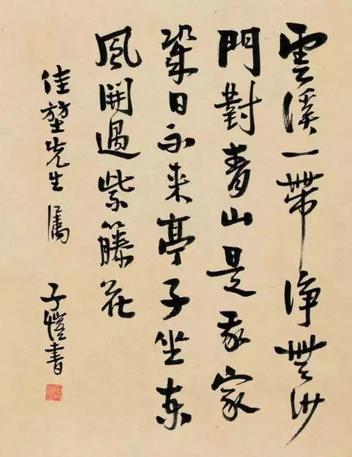 雲溪一帶淨無沙
門對青山是我家
幾日不来亭子坐東
風開過紫藤花
佳堃先生屬
子愷書